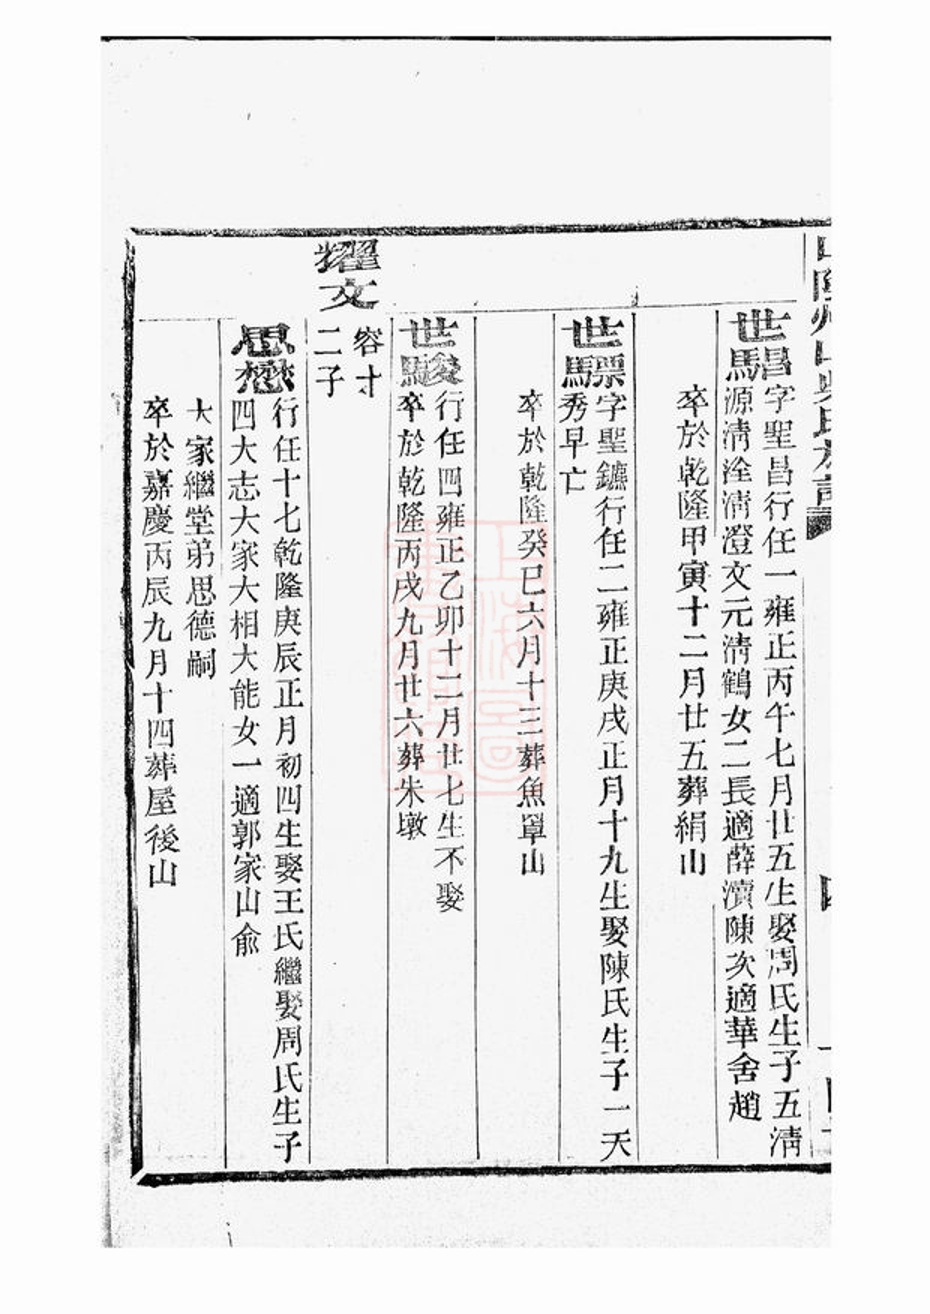 山陰州山吳氏族譜
世䮑字聖昌行任一雍正丙午七月廿五生娶周氏生子五淸
源淸淦淸澄文元淸鶴女二長適薛瀆陳次適華舍趙
卒於乾隆甲寅十二月廿五葬絹山
世驃字聖鑣行任二雍正庚戌正月十九生娶陳氏生子一天
秀早亡
卒於乾隆癸巳六月十三葬魚罩山
世駿行任四雍正乙卯十二月廿七生不娶
卒於乾隆丙戌九月廿六葬朱墩
耀文
容寸
二子
思懋行任十七乾隆庚辰正月初四生娶王氏繼娶周氏生子
四大志大家大相大能女一適郭家山俞
大家繼堂弟思德嗣
卒於嘉慶丙辰九月十四葬屋後山